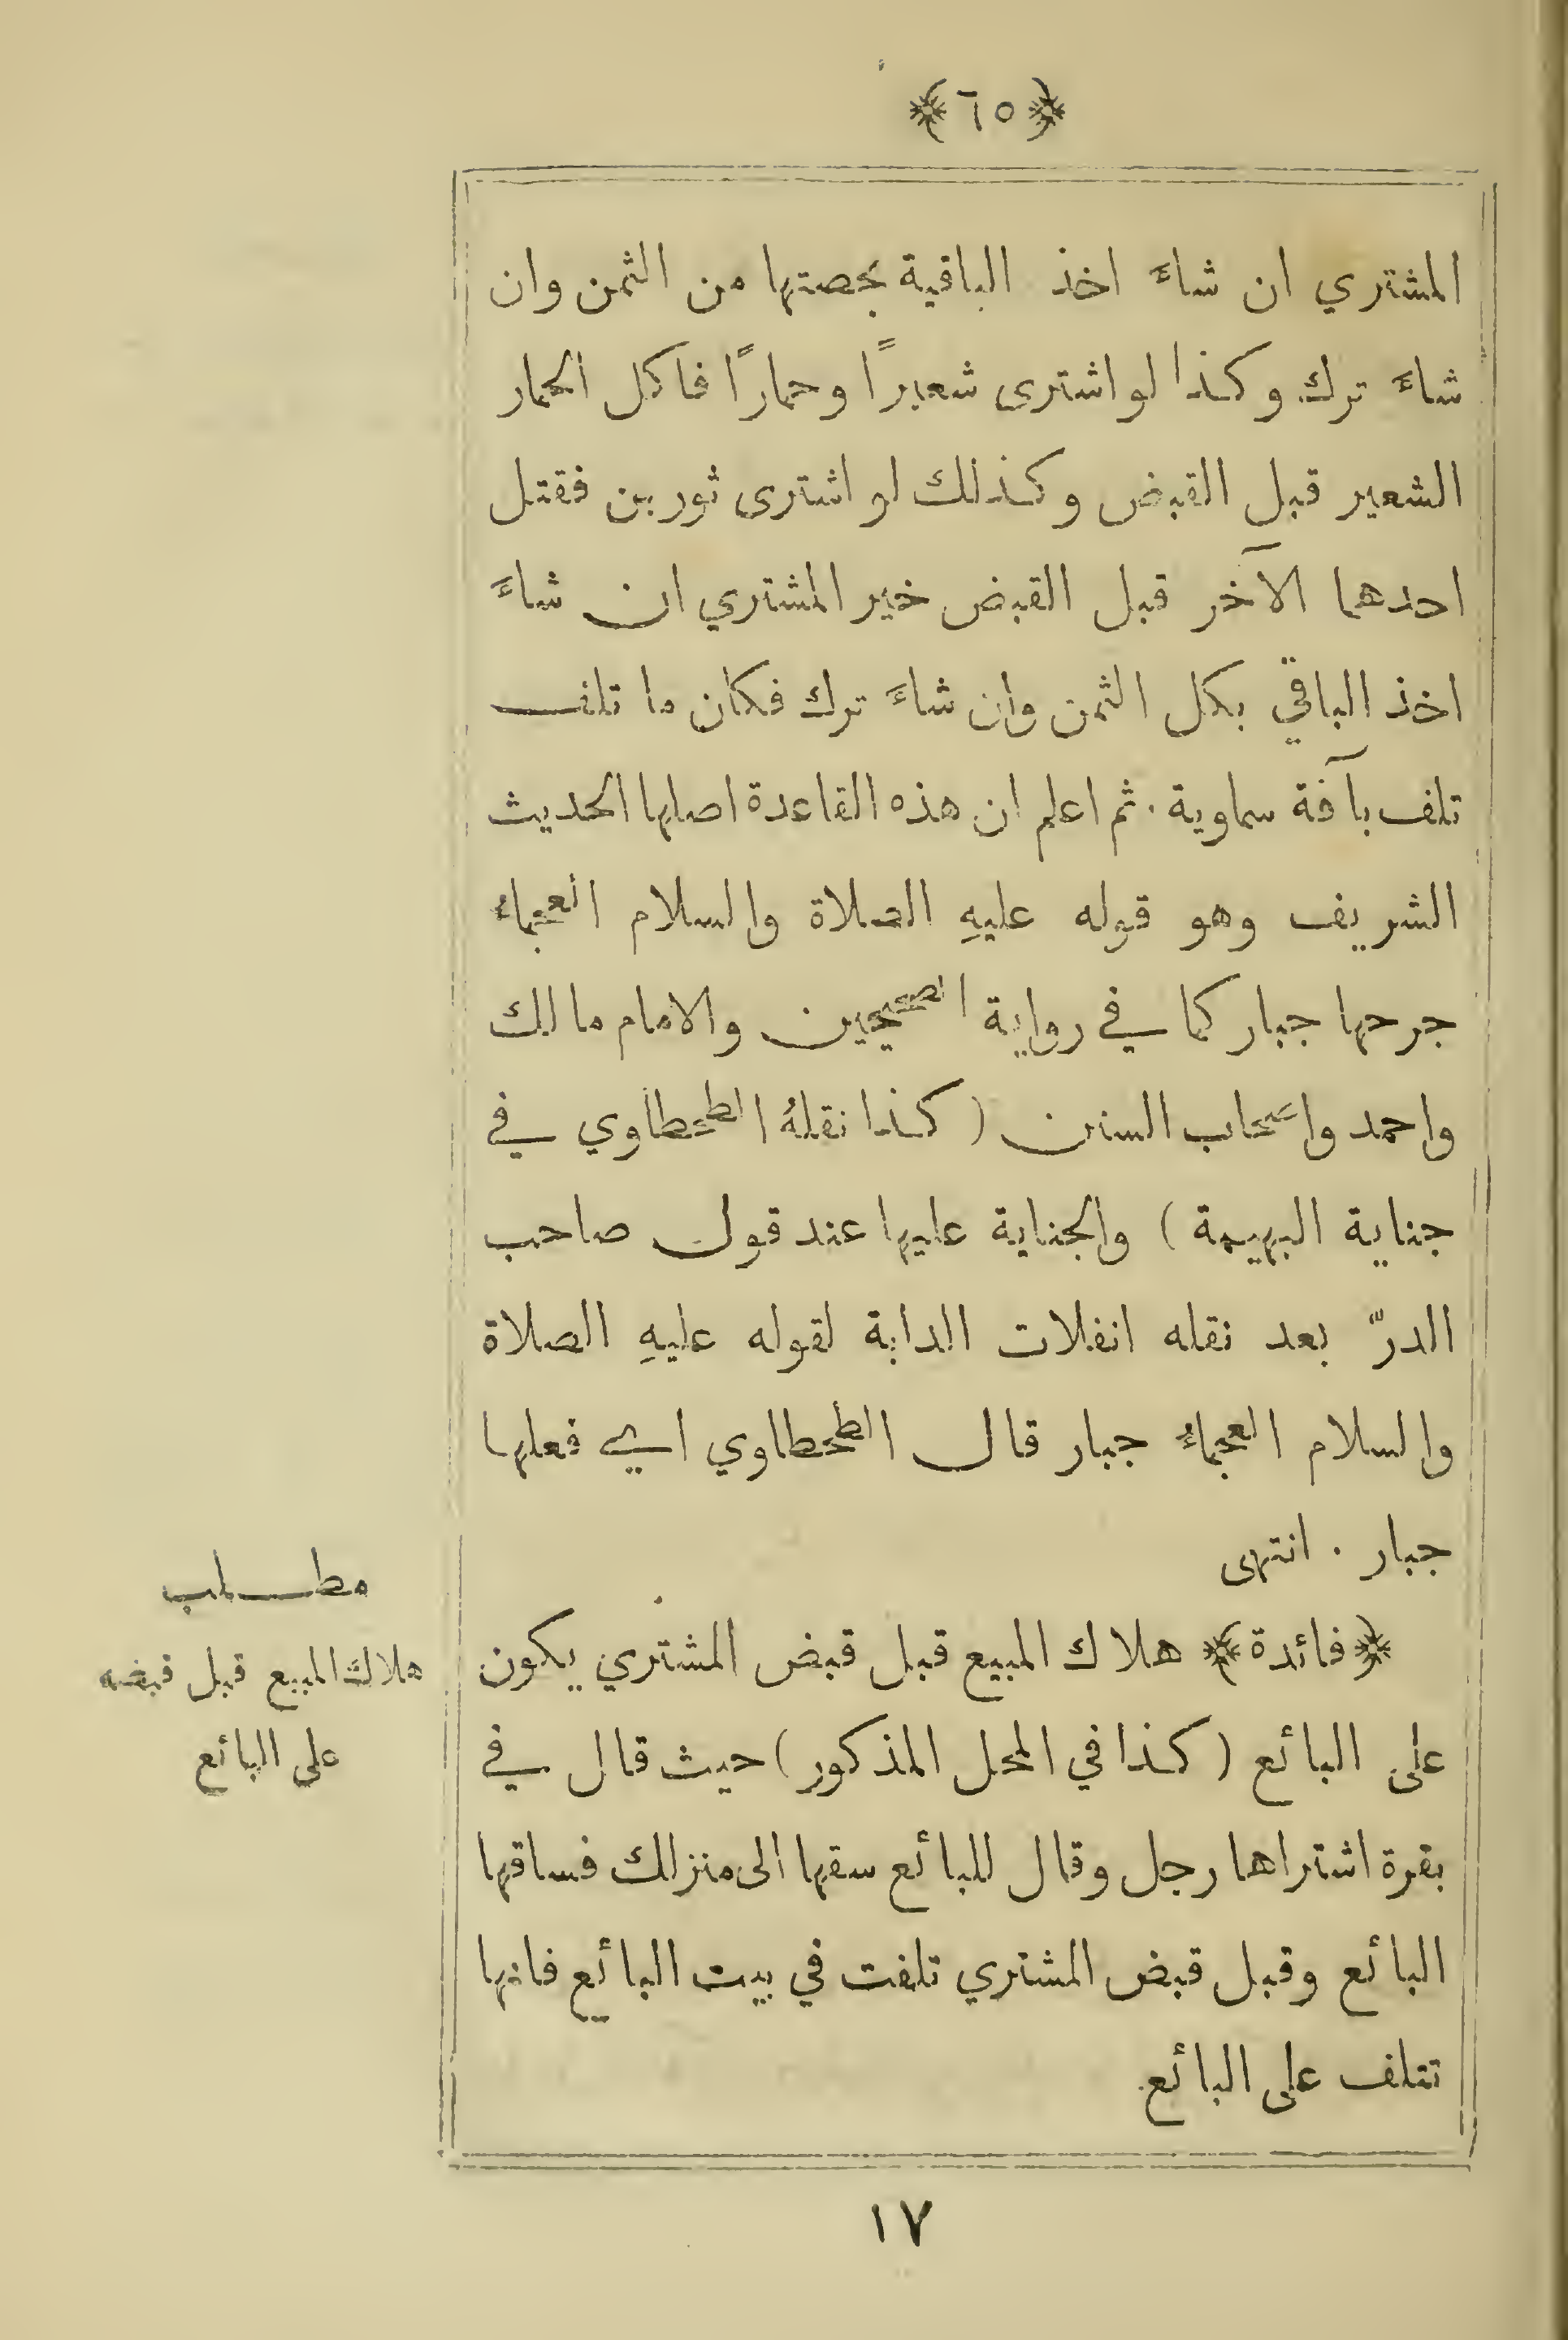 ﴿٦٥﴾
المشتري ان شاءَ اخذ الباقية بحصتها من الثمن وان
شاءَ ترك وكذا لو اشترى شعيراً وحماراً فاكل الحمار
الشعير قبل القبض وكذلك لو اشترى ثورين فقتل
احدهما الآخر قبل القبض خير المشتري ان شاءَ
اخذ الباقي بكل الثمن وان شاءَ ترك فكان ما تلف
تلف بآفة سماوية . ثم اعلم ان هذه القاعدة اصلها الحديث
الشريف وهو قوله عليهِ الصلاة والسلام العجماءُ
جرحها جبار كما في رواية الصحيحين والامام مالك
واحمد واصحاب السنن (كذا نقلهُ الطحطاوي في
جناية البهيمة) والجناية عليها عند قول صاحب
الدرّ بعد نقله انفلات الدابة لقوله عليهِ الصلاة
والسلام العجماءُ جبار قال الطحطاوي اي فعلها
جبار . انتهى
﴿فائدة﴾ هلاك المبيع قبل قبض المشتري يكون
على البائع (كذا في المحل المذكور) حيث قال في
بقرة اشتراها رجل وقال للبائع سقها الى منزلك فساقها
البائع وقبل قبض المشتري تلفت في بيت البائع فانها
تتلف على البائع.
مطلب
هلاك المبيع قبل قبضه
على البائع
١٧